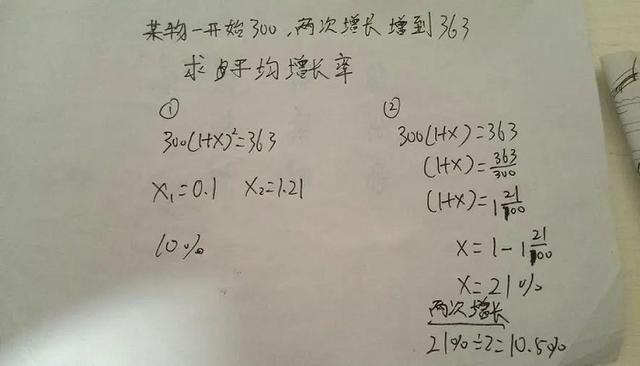 某物一开始300,两次增长增到363
求平均增长率
①
300(1+X)²=363
X₁=0.1 X₂=1.21
10%
②
300(1+X)=363
(1+X)=363/300
(1+X)=1 21/100
X=1-1 21/100
X=21%
两次增长
21%÷2=10.5%